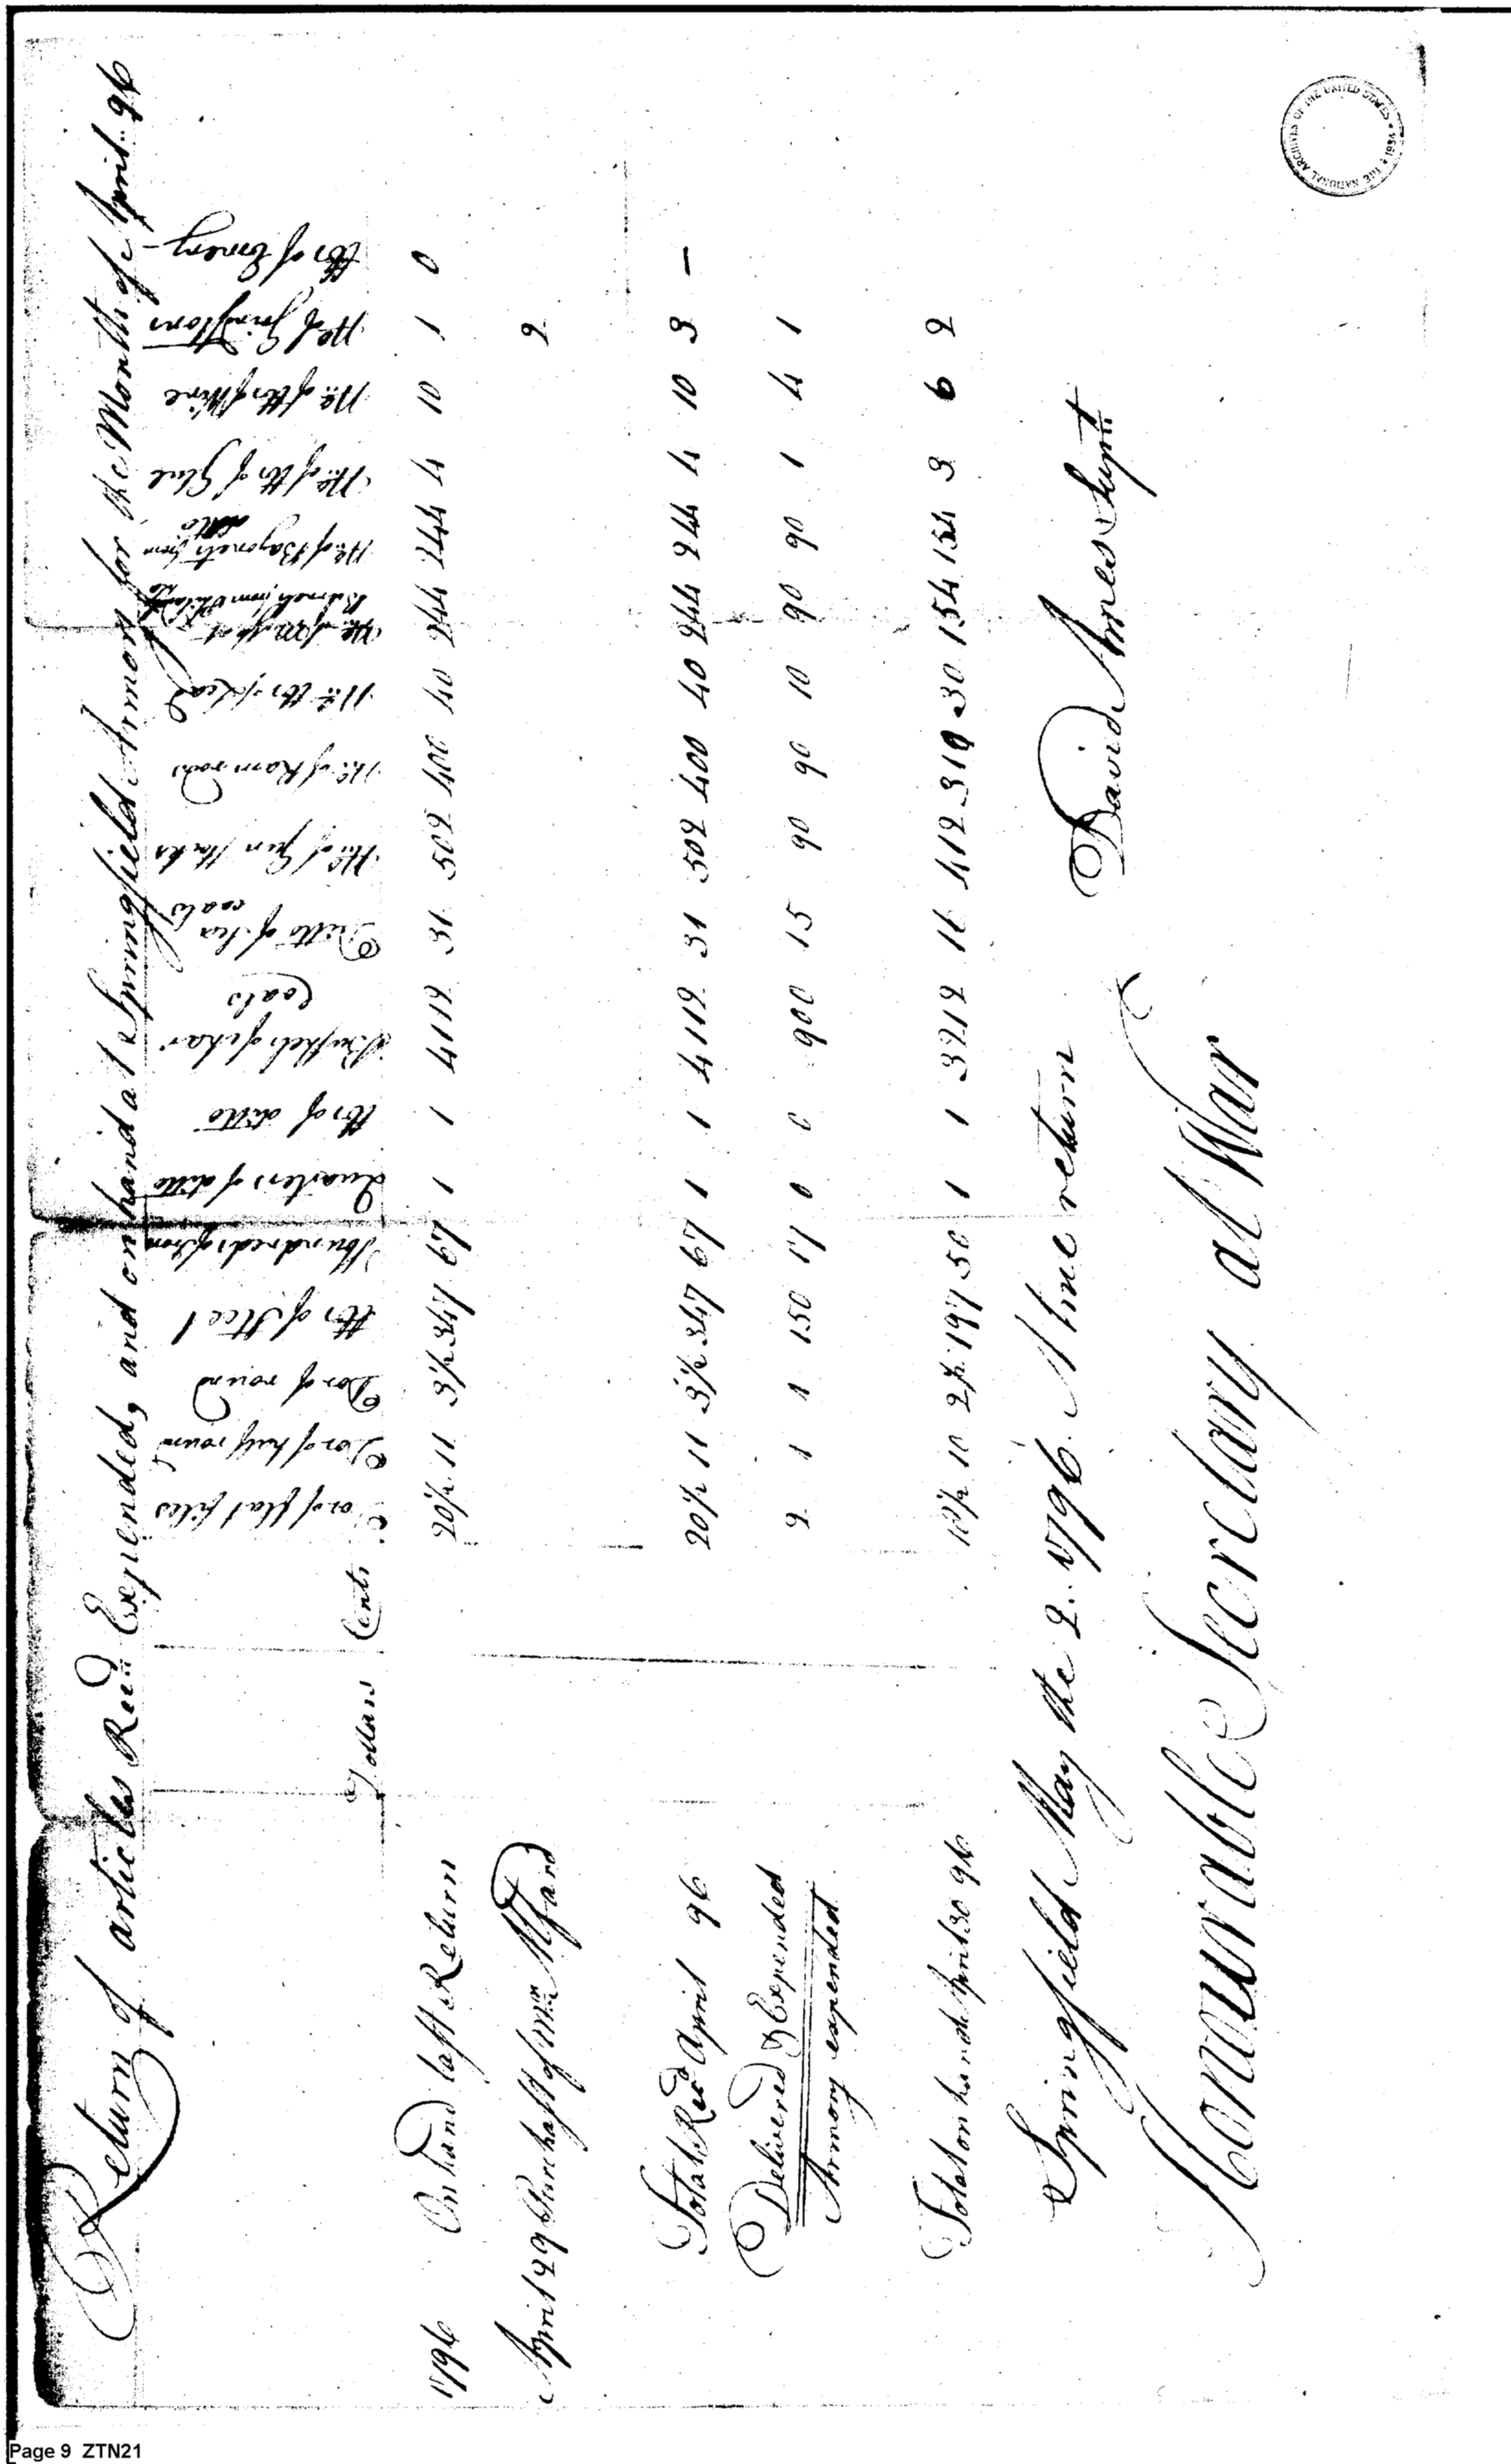 Return of articles Recd Expended, and on hand at Springfield Armory for the Month of April 96
Dollars Cents Doz of flat files Doz of half round Doz of round lbs of Steel Hundreds of Iron Quarters of ditto lbs of ditto Bushels of char coals Ditto of sea coals No. of Gun Stocks No. of Ram rods No. lbs of Lead No. of Barrels from No. of Bayonets from ditto No. of lbs of Glue No. of lbs of Wire No. of Grindstons lbs of Emery
1796 On hand last Return 20½ 11 3½ 347 67 1 1 4112 31 502 400 40 244 244 4 10 1 0
April 29 Purchast of 2
Total Recd April 96 20½ 11 3½ 347 67 1 1 4112 31 502 400 40 244 244 4 10 3 —
Delivered & Expended 2 1 1 150 17 0 0 900 15 90 90 10 90 90 1 4 1
Armory expended
Total on hand April 30 96 18½ 10 2½ 197 50 1 1 3212 16 412 310 30 154 154 3 6 2
Springfield May the 2. 1796. A true return David Ames Supt
Honourable Secretary at War
THE NATIONAL ARCHIVES OF THE UNITED STATES • 1934 •
Page 9 ZTN21